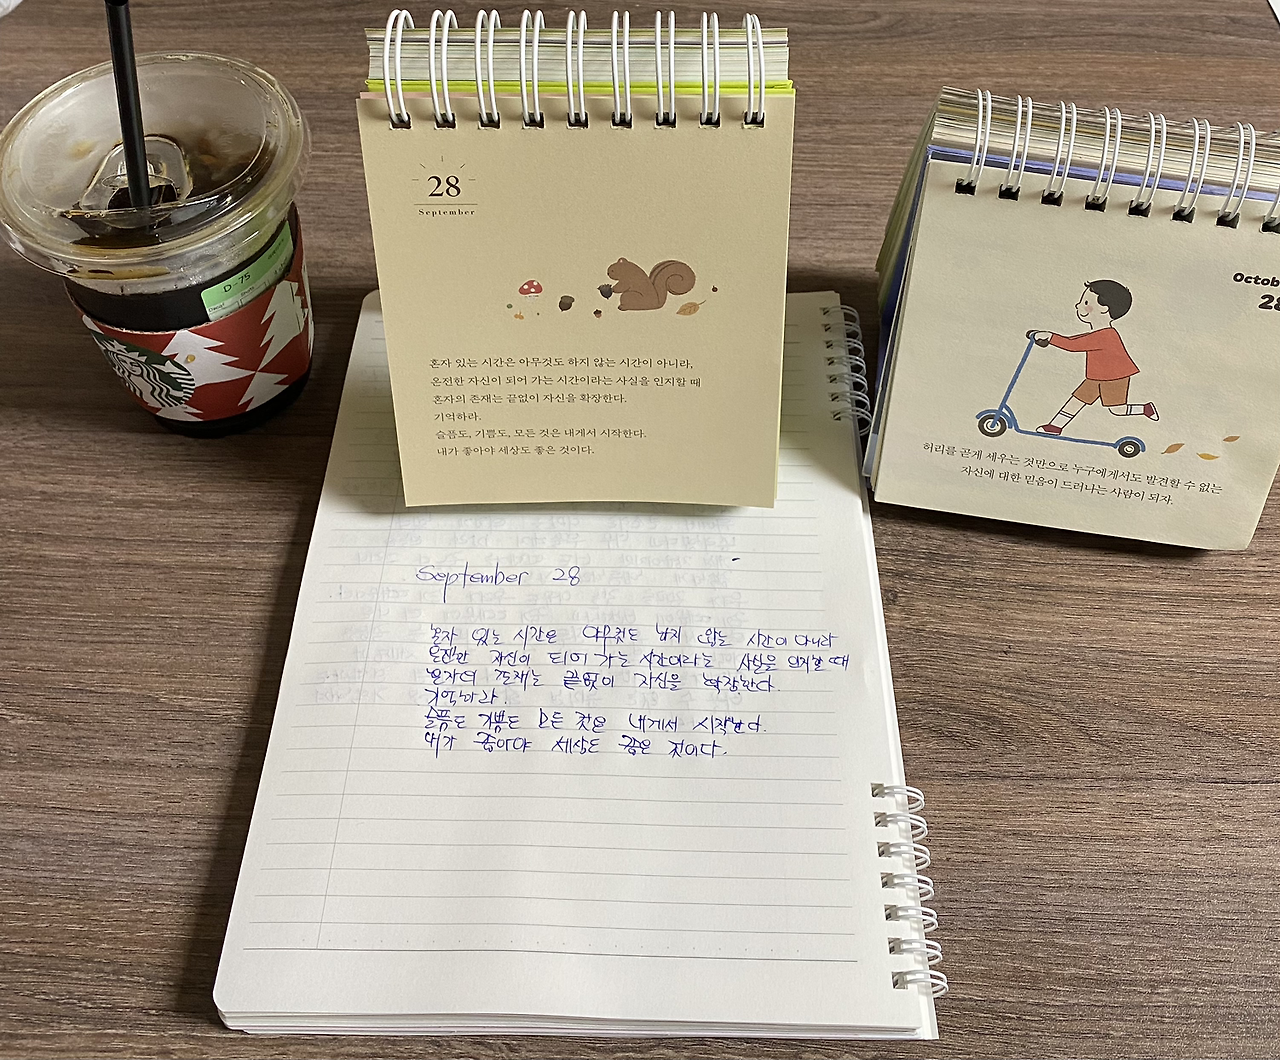 D-75
28
September
혼자 있는 시간은 아무것도 하지 않는 시간이 아니라,
온전한 자신이 되어 가는 시간이라는 사실을 인지할 때
혼자의 존재는 끝없이 자신을 확장한다.
기억하라.
슬픔도, 기쁨도, 모든 것은 내게서 시작한다.
내가 좋아야 세상도 좋은 것이다.
Octob
28
허리를 곧게 세우는 것만으로 누구에게서도 발견할 수 없는
자신에 대한 믿음이 드러나는 사람이 되자.
September 28
혼자 있는 시간은 아무것도 하지 않는 시간이 아니라
온전한 자신이 되어 가는 시간이라는 사실을 인지할 때
혼자의 존재는 끝없이 자신을 확장한다.
기억하라.
슬픔도 기쁨도 모든 것은 내게서 시작한다.
내가 좋아야 세상도 좋은 것이다.